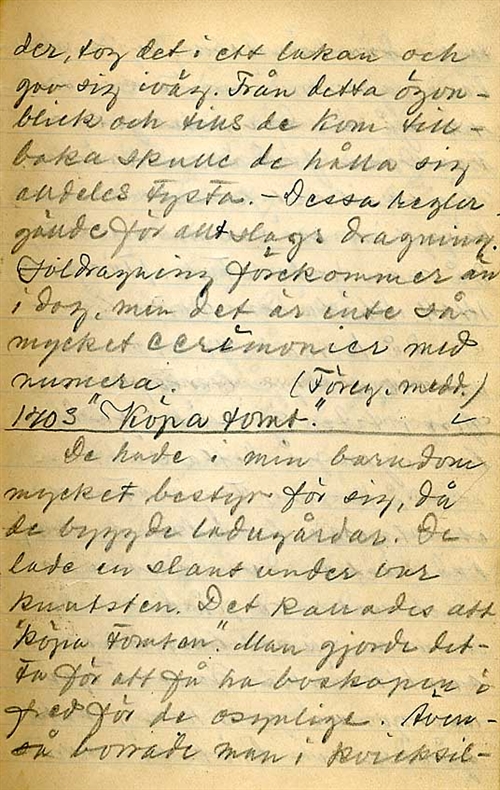 der, tog det i ett lakan och
gav sig iväg. Från detta ögon-
blick och tills de kom till-
baka skulle de hålla sig
alldeles tysta. - Dessa regler
gällde för allt slags dragning.
Söldragning förekommer än
i dag, men det är inte så
mycket ceremonier med
numera. (Föreg. medd.)
1703 "Köpa tomt."
De hade i min barndom
mycket bestyr för sig, då
de byggde ladugårdar. De
lade en slant under var
knutsten. Det kallades att
"köpa tomten". Man gjorde det-
ta för att få ha boskapen i
fred för de osynliga. Även-
så borrade man i kvicksil-